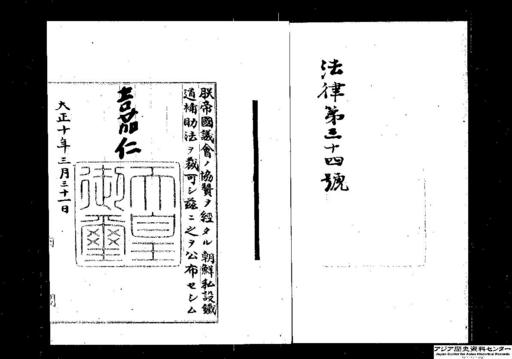 法律第三十四號
朕帝國議會ノ協贊ヲ經タル朝鮮私設鐵
道補助法ヲ裁可シ茲ニ之ヲ公布セシム
嘉仁
天皇
御璽
大正十年三月三十一日
アジア歴史資料センター
Japan Center for Asian Historical Records